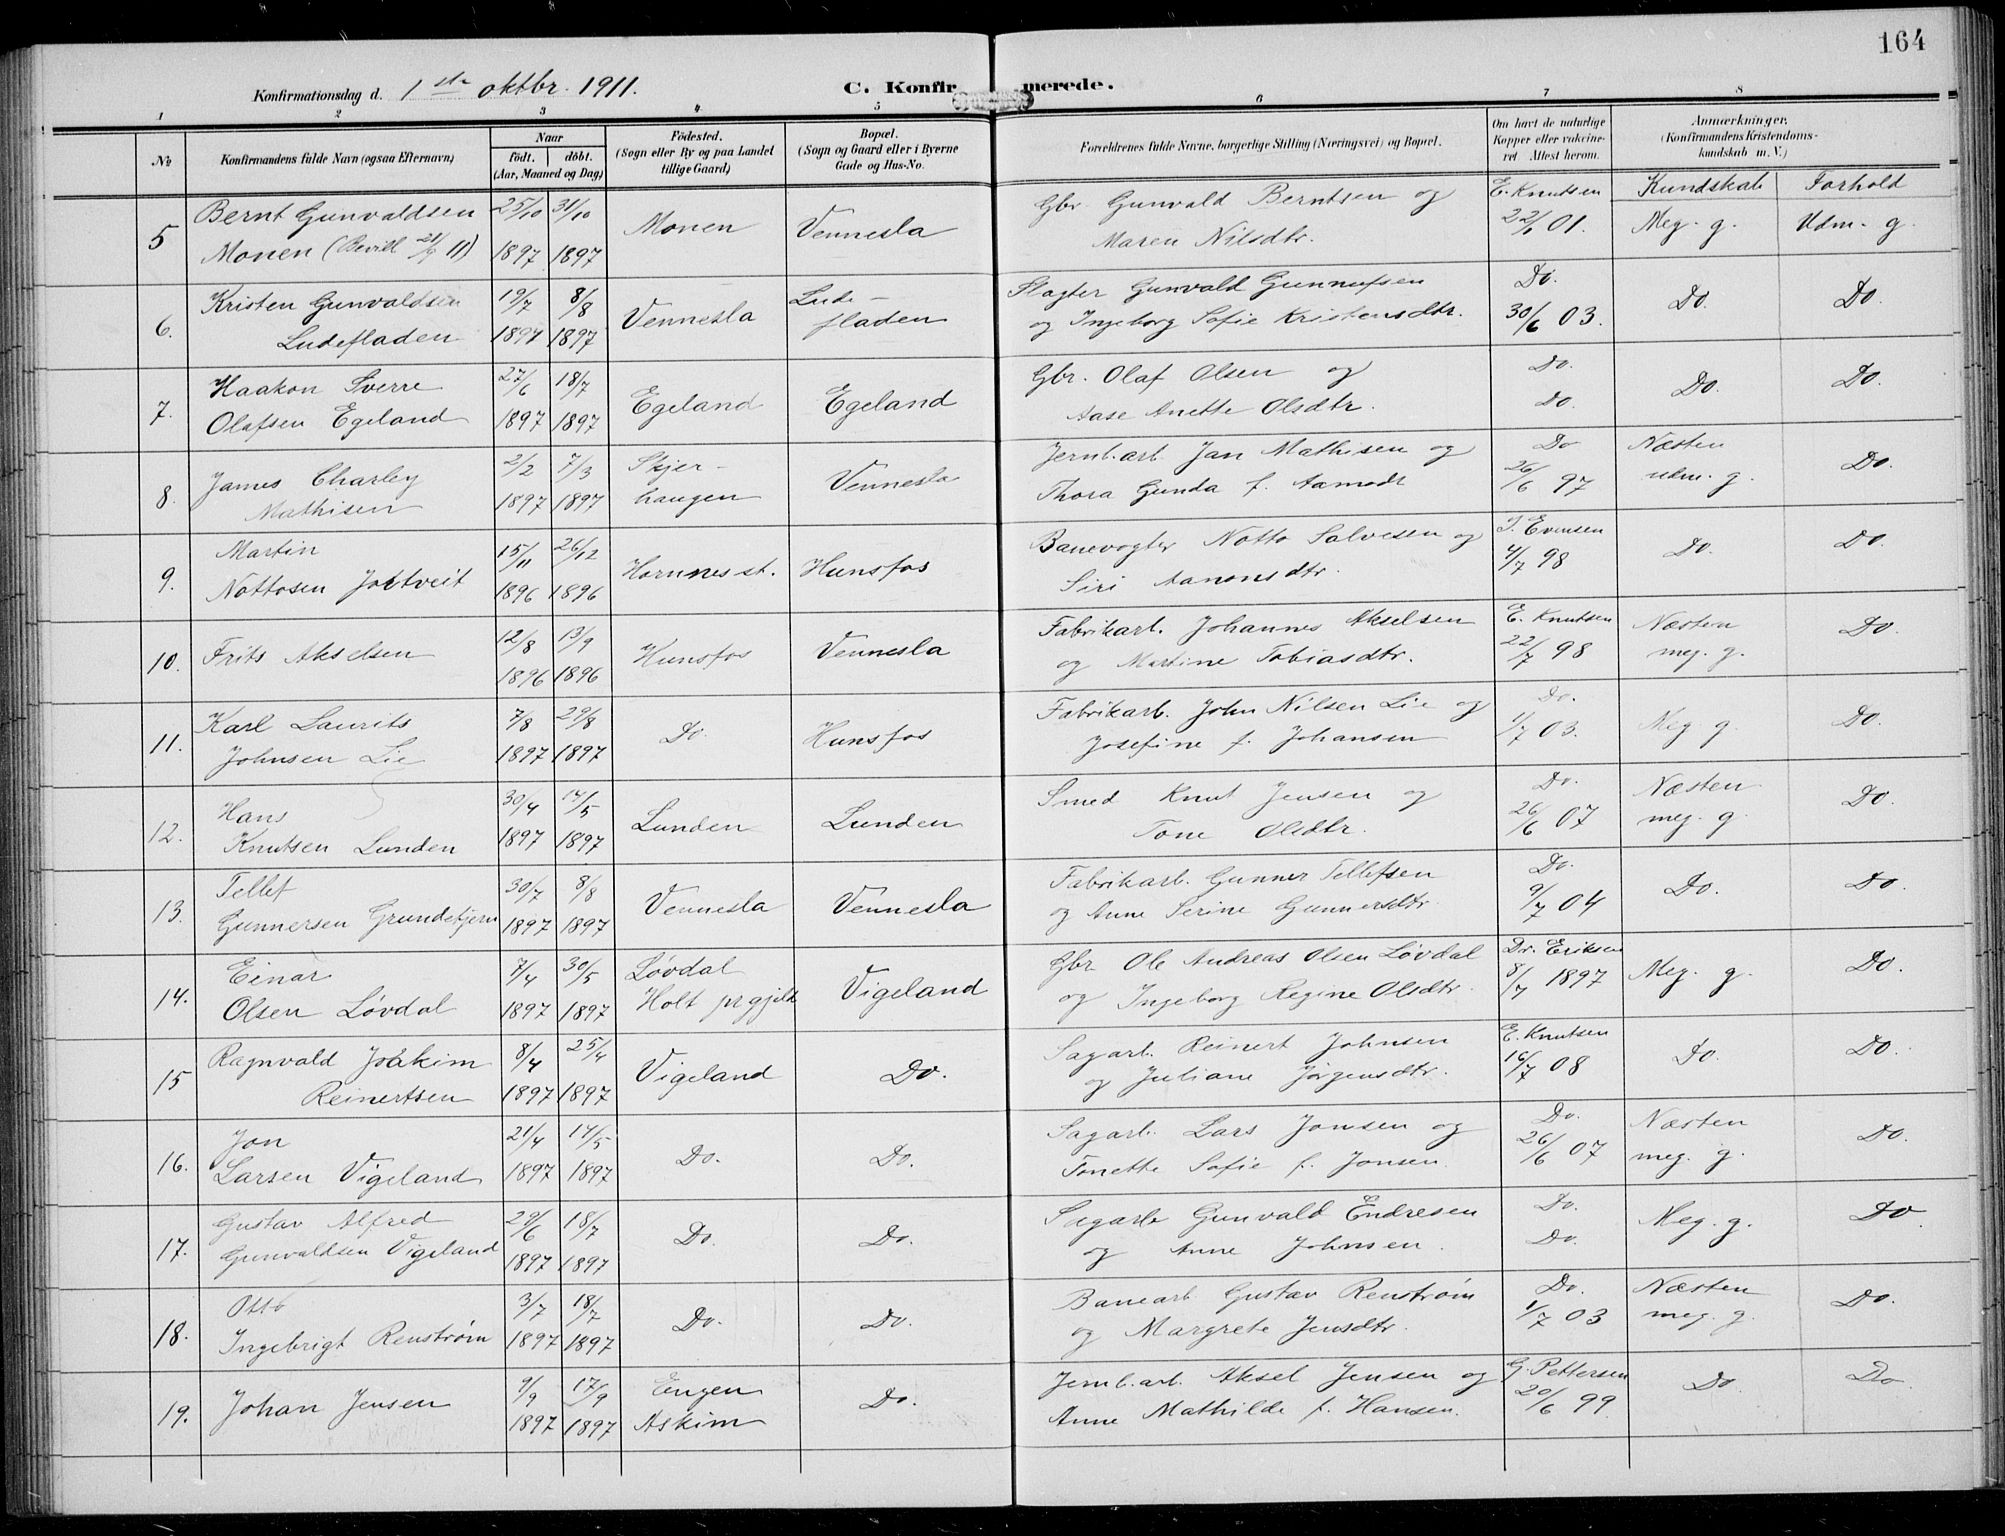 164
Konfirmationsdag d. 1ste oktbr. 1911.
C. Konfirmerede.
1 2 3 4 5 6 7 8
No
Konfirmandens fulde Navn (ogsaa Efternavn)
Naar
født. døbt.
(Aar, Maaned og Dag)
Fødested.
(Sogn eller By og paa Landet
tillige Gaard)
Bopæl.
(Sogn og Gaard eller i Byerne
Gade og Hus-No.
Forældrenes fulde Navne, borgerlige Stilling (Næringsvei) og Bopæl.
Om havt de naturlige
Kopper eller vakcine-
ret Attest herom.
Anmærkninger.
(Konfirmandens Kristendoms-
kundskab m. V.)
Kundskab Forhold
5 Bernt Gunvaldsen 25/10 31/10 Monen Vennesla Gbr. Gunvald Berntsen og E. Knutsen
Monen (Bevill 21/9 11) 1897 1897 Maren Nilsdtr. 22/6 01. Meg. g. Udm. g.
6. Kristen Gunvaldsen 19/7 8/8 Vennesla Lude- Slagter Gunvald Gunnufsen Do. Do. Do.
Ludefladen 1897 1897 fladen og Ingeborg Sofie Kristensdtr. 30/6 03.
7. Haakon Sverre 27/6 18/7 Egeland Egeland Gbr. Olaf Olsen og Do. Do. Do.
Olafsen Egeland 1897 1897 Aase Anette Olsdtr. Do.
8. James Charley 2/2 7/3 Skjer- Vennesla Jernb.arb. Jan Mathisen og Do Næsten Do.
Mathisen 1897 1897 haugen Thora Gunda f. Aamodt 26/6 97 udm. g.
9. Martin 15/11 26/12 Hornnes st. Hunsfos Banevogter Notto Salvesen og T. Evensen Do. Do.
Nottosen Jortveit 1896 1896 Siri Aanonsdtr. 4/7 98
10. Frits Akselsen 12/8 13/9 Hunsfos Vennesla Fabrikarb. Johannes Akselsen E. Knutsen Næsten Do.
1896 1896 og Martine Tobiasdtr. 22/7 98 meg. g.
11. Karl Laurits 7/8 29/8 Do. Hunsfos Fabrikarb. John Nilsen Lie og Do. Meg. g. Do.
Johnsen Lie 1897 1897 Josefine f. Johansen 1/7 03.
12. Hans 30/4 14/5 Lunden Lunden Smed Knut Jensen og Do. Næsten Do.
Knutsen Lunden 1897 1897 Tone Olsdtr. 26/6 07 meg. g.
13. Tellef 30/7 8/8 Vennesla Vennesla Fabrikarb. Gunner Tellefsen Do. Do. Do.
Gunnersen Grundetjern 1897 1897 og Anne Serine Gunnersdtr. 9/7 04
14. Einar 7/4 30/5 Løvdal Vigeland Gbr. Ole Andreas Olsen Løvdal Dr. Eriksen Meg. g. Do.
Olsen Løvdal 1897 1897 Holt prgjeld og Ingeborg Regine Olsdtr. 8/7 1897
15 Ragnvald Joakim 8/4 25/4 Vigeland Do. Sagarb. Reinert Johnsen E. Knutsen Do. Do.
Reinertsen 1897 1897 og Juliane Jørgensdtr. 16/7 08
16. Jon 21/4 14/5 Do. Do. Sagarb. Lars Jonsen og Do. Næsten Do.
Larsen Vigeland 1897 1897 Tonette Sofie f. Jonsen. 26/6 07 meg. g.
17. Gustav Alfred 29/6 18/7 Do. Do. Sagarb Gunvald Endresen Do. Meg. g. Do
Gunvaldsen Vigeland 1897 1897 og Anne Johnsen. Do.
18. Otto 3/7 18/7 Do. Do. Banearb. Gustav Renstrøm Do. Næsten Do.
Ingebrigt Renstrøm 1897 1897 og Margrete Jensdtr. 1/7 03 meg. g.
19. Johan Jensen 9/9 17/9 Engen Do. Jernb.arb. Aksel Jensen og G. Pettersen Do Do.
1897 1897 Askim Anne Mathilde f. Hansen. 20/6 99.